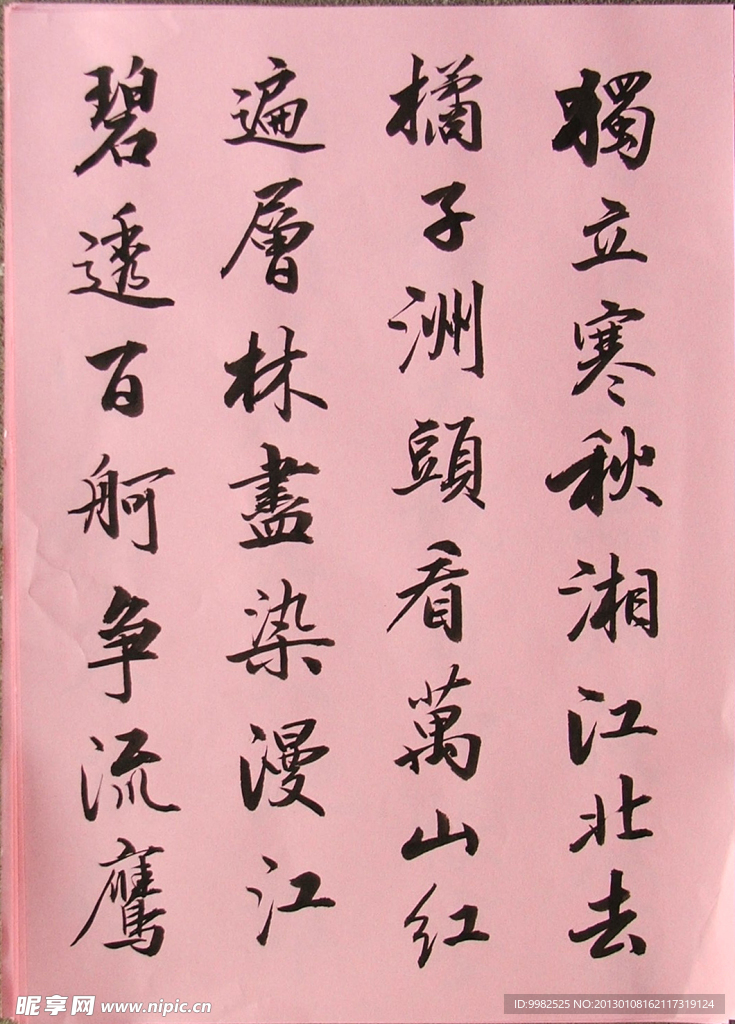 獨立寒秋湘江北去
橘子洲頭看萬山红
遍層林盡染漫江
碧透百舸争流鷹
昵享网 www.nipic.cn
ID:9982525 NO:20130108162117319124